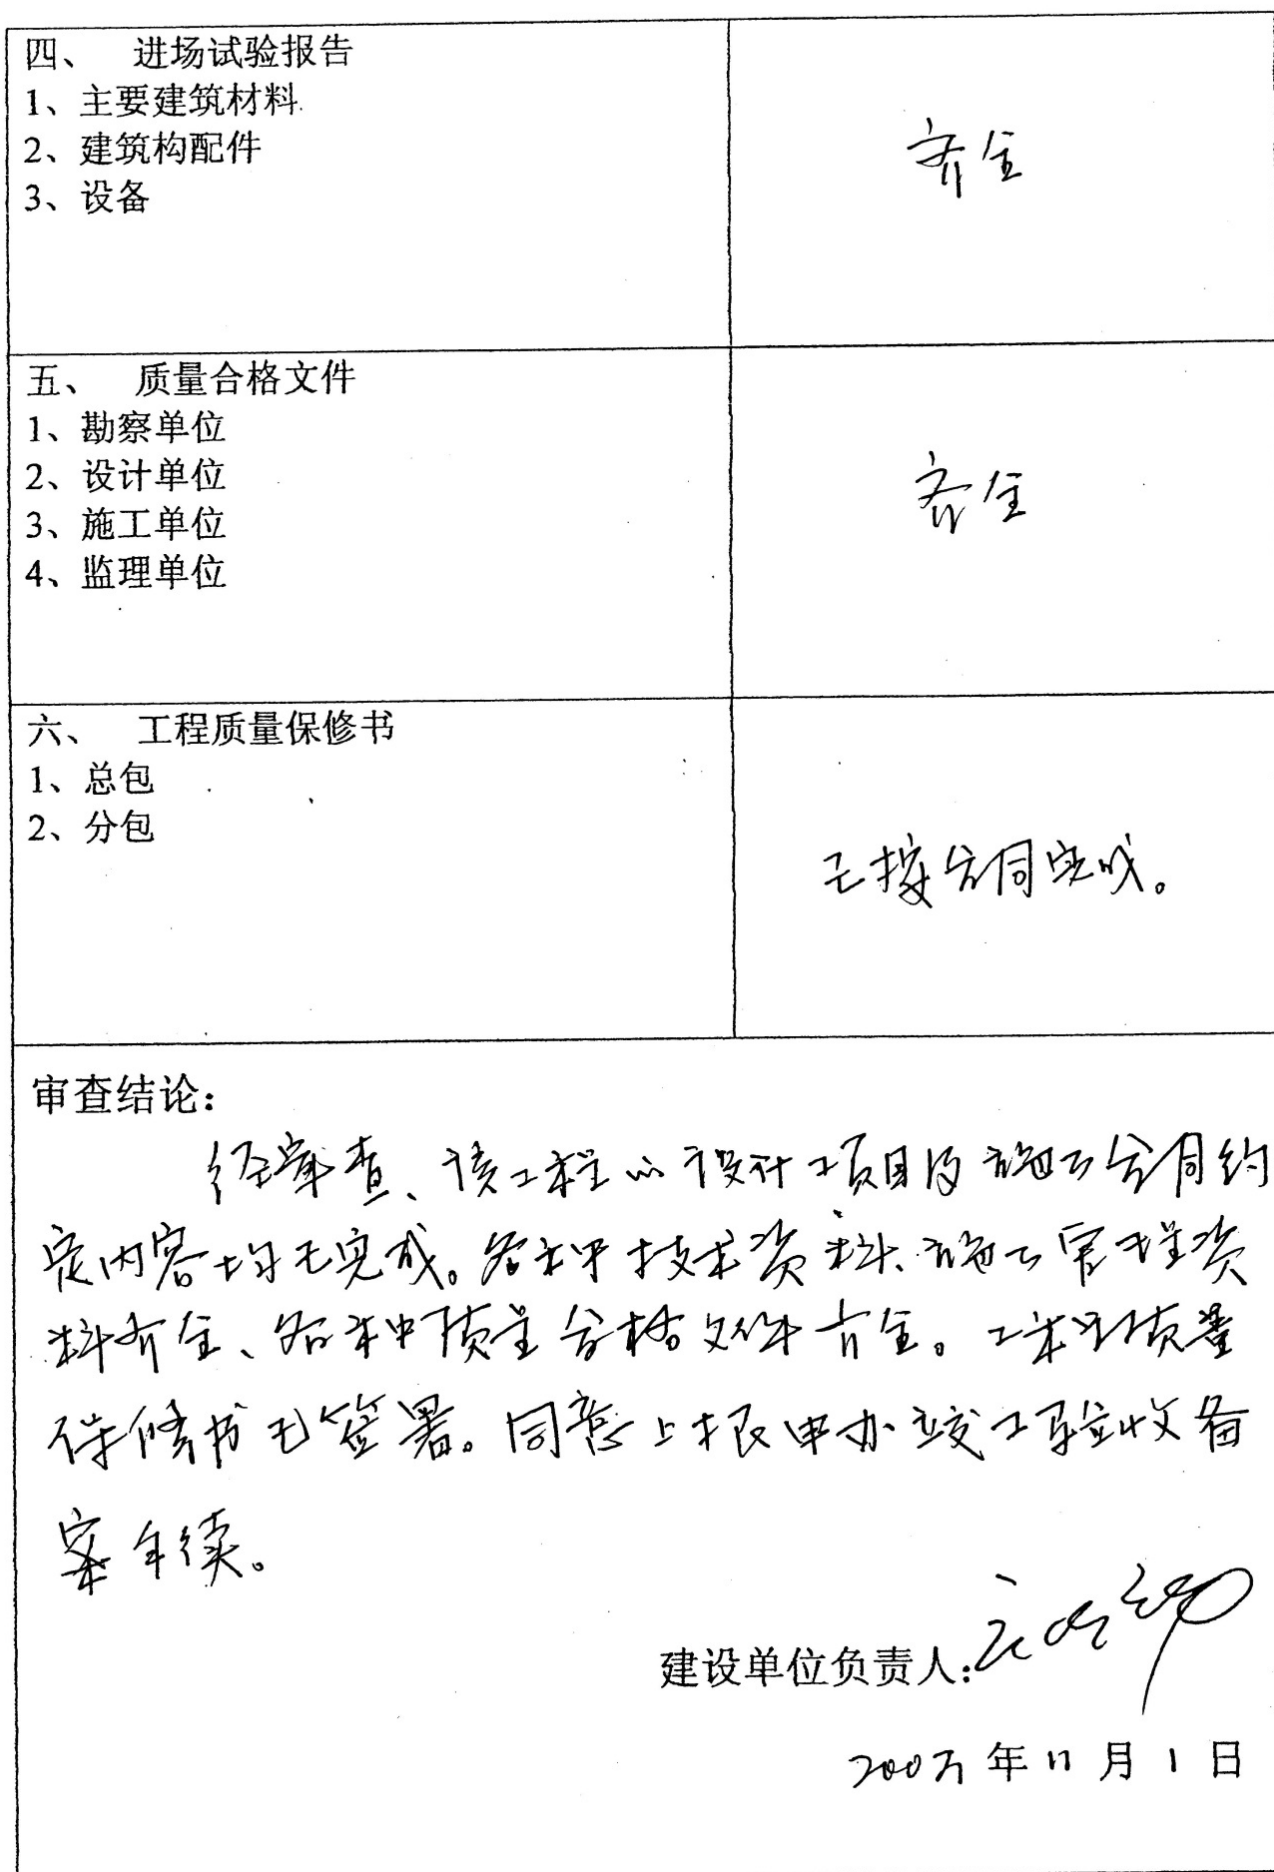 四、 进场试验报告
1、主要建筑材料
2、建筑构配件
3、设备
齐全
五、 质量合格文件
1、勘察单位
2、设计单位
3、施工单位
4、监理单位
齐全
六、 工程质量保修书
1、总包
2、分包
已按合同完成。
审查结论:
经审查、该工程的设计项目及施工合同约
定内容均已完成。各种技术资料、施工管理资
料齐全、各种质量合格文件齐全。工程质量
保修书已签署。同意上报申办竣工验收备
案手续。
建设单位负责人:
年 11 月 1 日